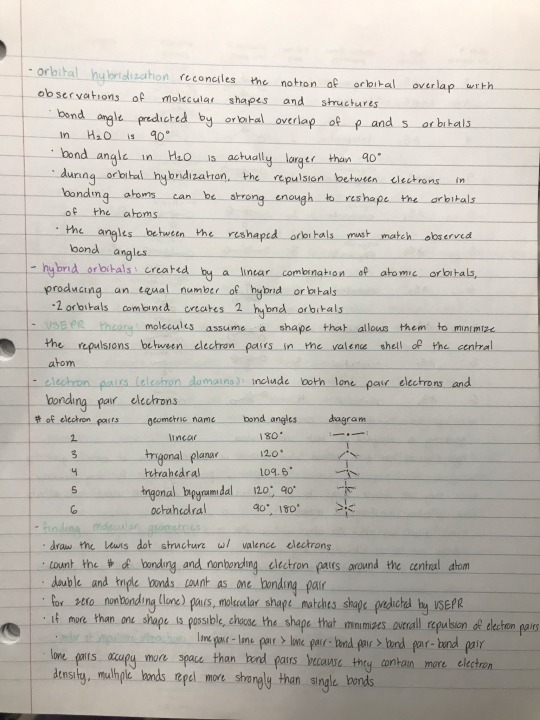 - orbital hybridization reconciles the notion of orbital overlap with
observations of molecular shapes and structures
· bond angle predicted by orbital overlap of p and s orbitals
in H₂O is 90°
· bond angle in H₂O is actually larger than 90°
· during orbital hybridization, the repulsion between electrons in
bonding atoms can be strong enough to reshape the orbitals
of the atoms
· the angles between the reshaped orbitals must match observed
bond angles
- hybrid orbitals: created by a linear combination of atomic orbitals,
producing an equal number of hybrid orbitals
· 2 orbitals combined creates 2 hybrid orbitals
- VSEPR theory: molecules assume a shape that allows them to minimize
the repulsions between electron pairs in the valence shell of the central
atom
- electron pairs (electron domains): include both lone pair electrons and
bonding pair electrons
# of electron pairs geometric name bond angles diagram
2 linear 180°
3 trigonal planar 120°
4 tetrahedral 109.5°
5 trigonal bipyramidal 120°, 90°
6 octahedral 90°, 180°
- finding molecular geometries
· draw the lewis dot structure w/ valence electrons
· count the # of bonding and nonbonding electron pairs around the central atom
· double and triple bonds count as one bonding pair
· for zero nonbonding (lone) pairs, molecular shape matches shape predicted by VSEPR
· if more than one shape is possible, choose the shape that minimizes overall repulsion of electron pairs
· order of repulsive interaction: lone pair - lone pair > lone pair - bond pair > bond pair - bond pair
· lone pairs occupy more space than bond pairs because they contain more electron
density, multiple bonds repel more strongly than single bonds